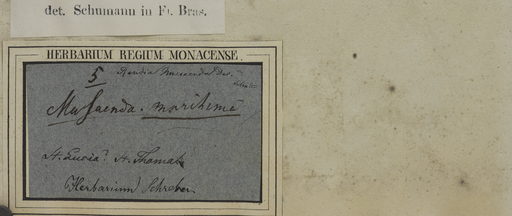 det. Schumann in Fl. Bras.
HERBARIUM REGIUM MONACENSE.
5 Randia Mussaenda
Mussaenda maritima
St. Lucia? St. Thomas
Herbarium Schreber